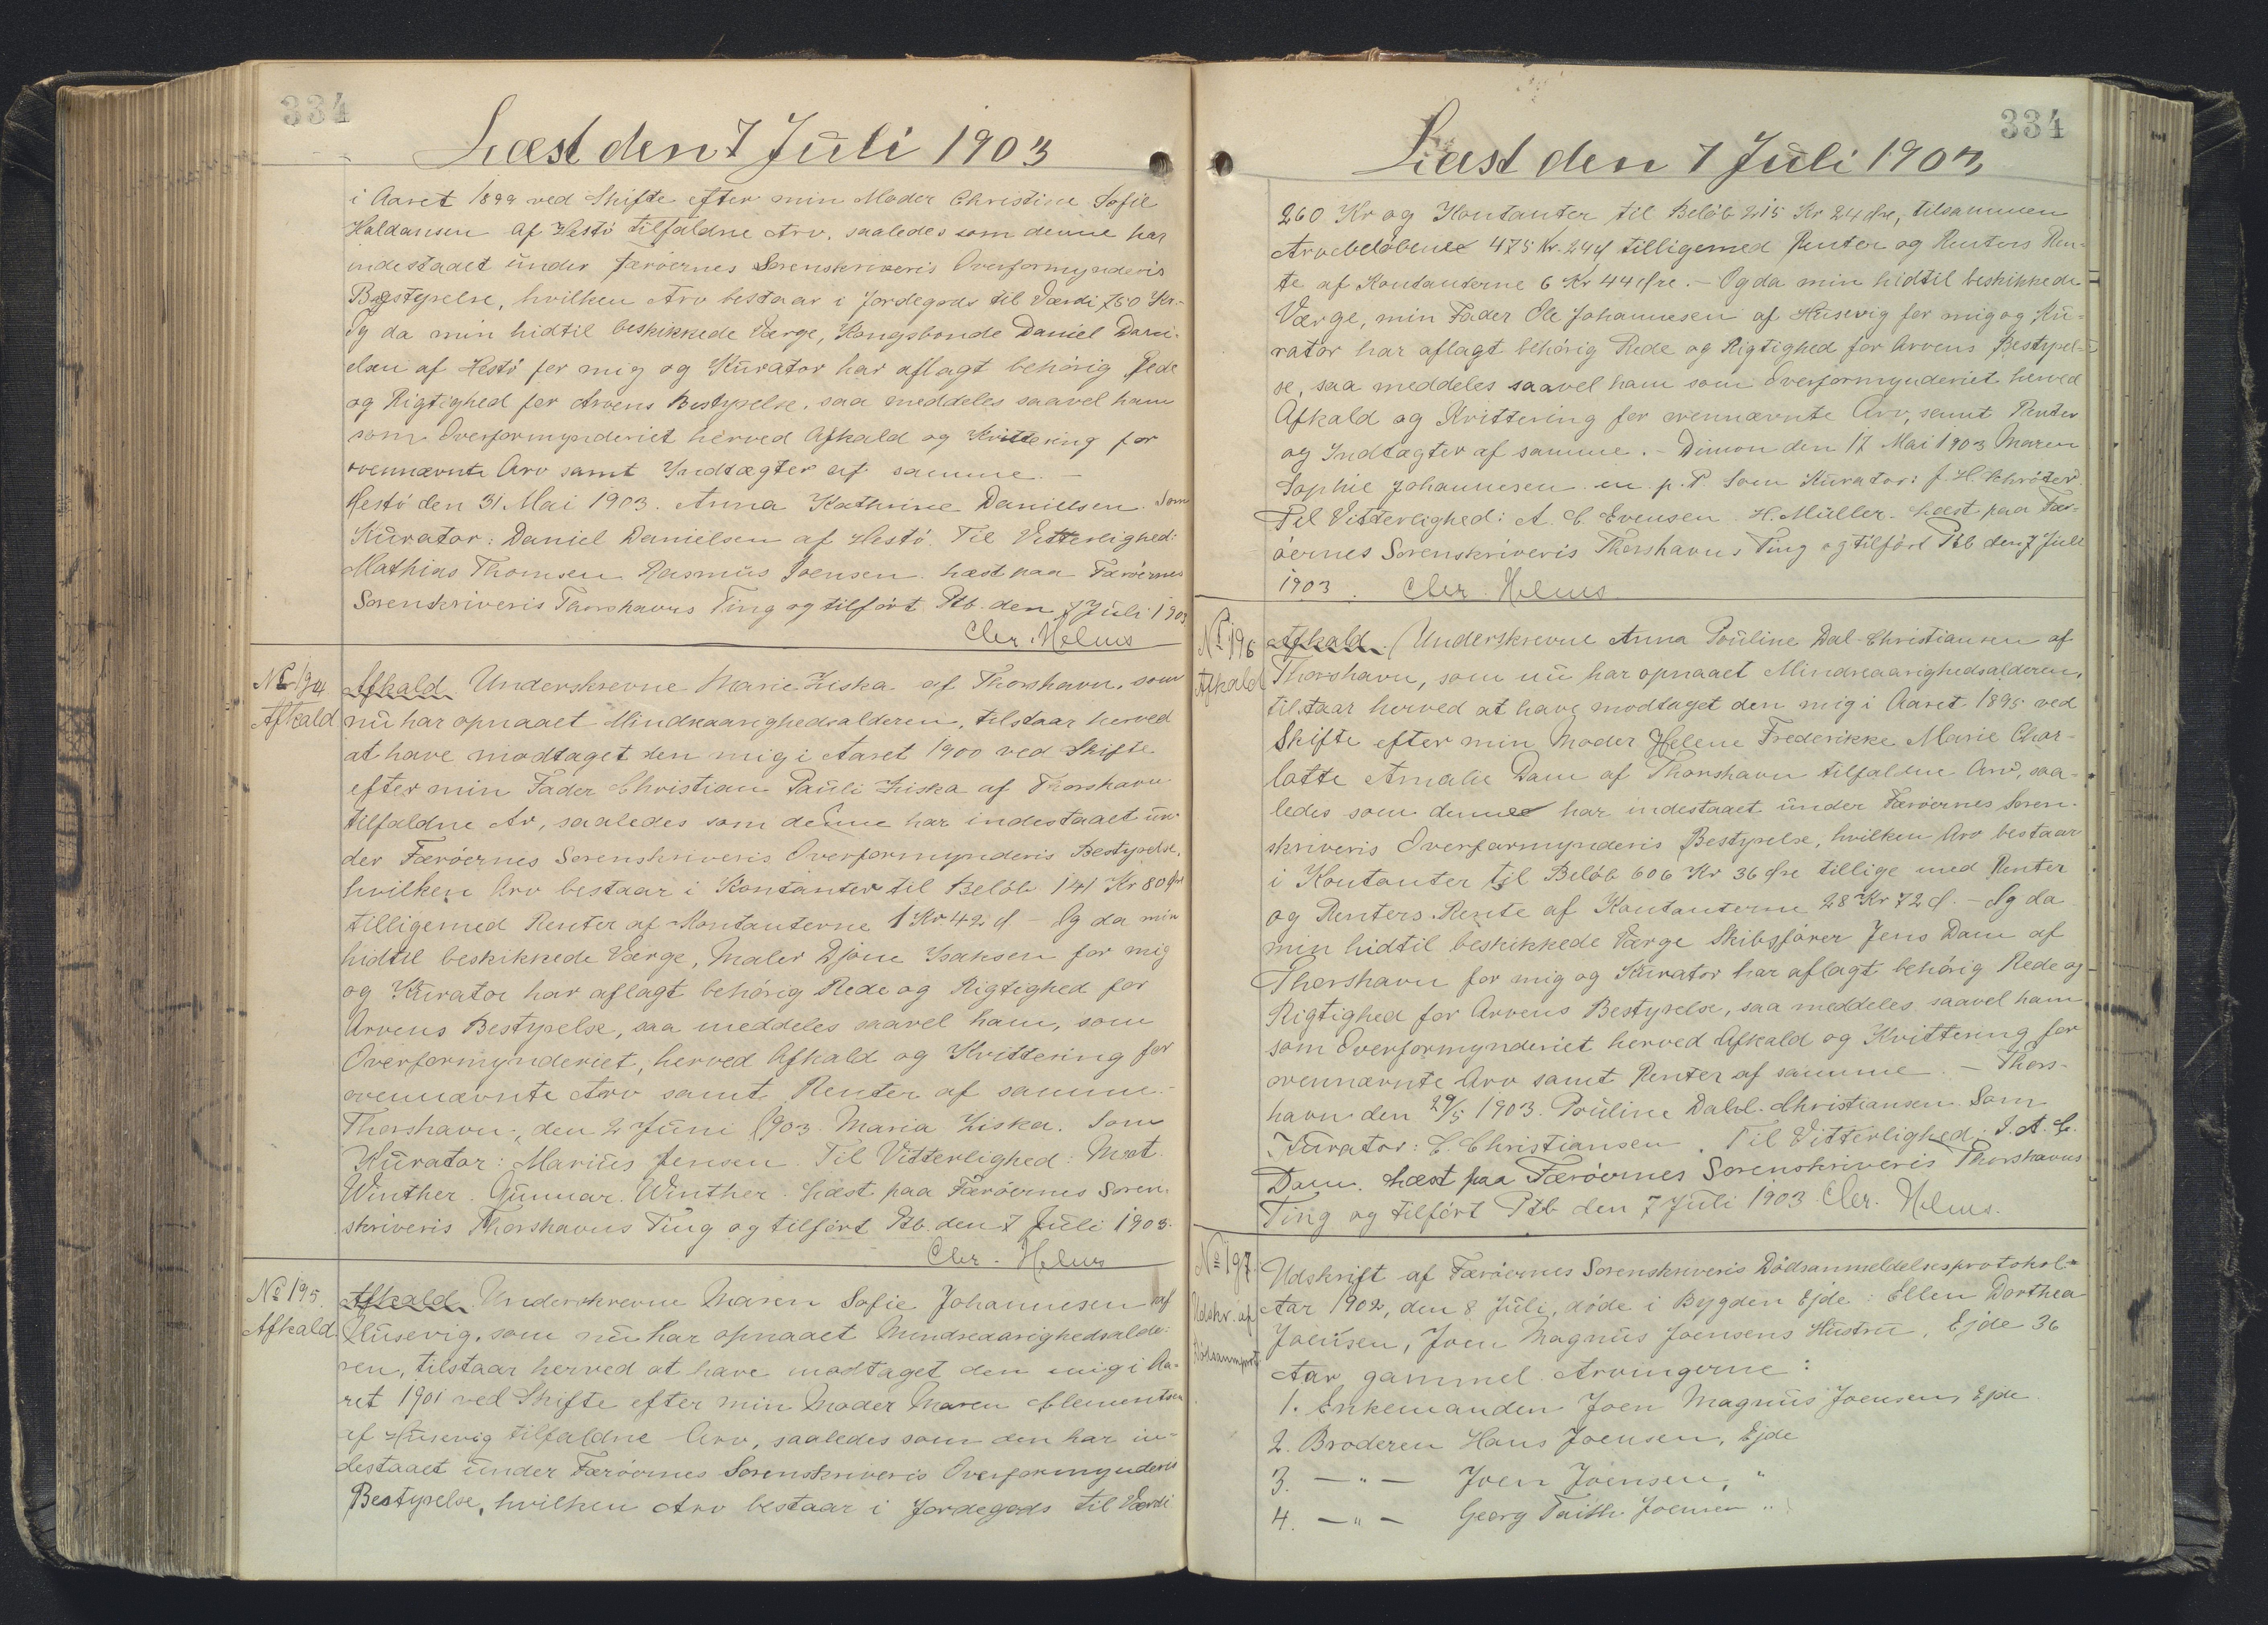 334
Læst den 7 Juli 1903
i Aaret 1899 ved Skifte efter min Moder Christine Sofie
Haldansen af Hestö tilfaldne Arv, saaledes som denne har
indestaaet under Færöernes Sorenskriveris Overformynderis
Bestyrelse, hvilken Arv bestaar i Jordegods til Værdi 760 Kr.-
Og da min hidtil beskikkede Værge, Kongsbonde Daniel Dani-
elsen af Hestö for mig og Kurator har aflagt behörig Rede
og Rigtighed for Arvens Bestyrelse, saa meddeles saavel ham
som Overformynderiet herved Afkald og Kvittering for
ovennævnte Arv samt Indtægter af samme. -
Hestö den 31. Mai 1903. Anna Kathrine Danielsen. Som
Kurator: Daniel Danielsen af Hestö. Til Vitterlighed:
Mathias Thomsen Rasmus Joensen. Læst paa Færöernes
Sorenskriveris Thorshavns Ting og tilfört Ptb. den 7 Juli 1903
Chr. Helms
No 194
Afkald
Afkald. Underskrevne Marie Ziska af Thorshavn, som
nu har opnaaet Mindreaarighedsalderen, tilstaar herved
at have modtaget den mig i Aaret 1900 ved Skifte
efter min Fader Christian Pauli Ziska af Thorshavn
tilfaldne Av, saaledes som denne har indestaaet un-
der Færöernes Sorenskriveris Overformynderis Bestyrelse,
hvilken Arv bestaar i Kontanter til Belöb 141 Kr 80 Öre
tilligemed Renter af Kontanterne 1 Kr. 42 Ø - Og da min
hidtil beskikkede Værge, Maler Djone Isaksen for mig
og Kurator har aflagt behörig Rede og Rigtighed for
Arvens Bestyrelse, saa meddeles saavel ham, som
Overformynderiet, herved Afkald og Kvittering for
ovennævnte Arv samt Renter af samme.-
Thorshavn, den 2 Juni 1903. Maria Ziska. Som
Kurator: Marius Jensen. Til Vitterlighed: Mort.
Winther. Gunnar. Winther. Læst paa Færöernes Soren-
skriveris Thorshavns Ting og tilfört Ptb. den 7 Juli 1903.
Chr. Helms
No 195.
Afkald
Afkald. Underskrevne Maren Sofie Johannesen af
Husevig, som nu har opnaaet Mindreaarighedsalde-
ren, tilstaar herved at have modtaget den mig i Aa-
ret 1901 ved Skifte efter min Moder Maren Clementsen
af Husevig tilfaldne Arv, saaledes som den har in-
destaaet under Færöernes Sorenskriveris Overformynderis
Bestyrelse, hvilken Arv bestaar i Jordegods til Værdi
334
Læst den 7 Juli 1903
260 Kr og Kontanter til Belöb 215 Kr 24 Öre, tilsammen
Arvebelöbene 475 Kr. 24 Ø tilligemed Renter og Renters Ren-
te af Kontanterne 6 Kr 44 Öre. - Og da min hidtil beskikkede
Værge, min Fader Ole Johannesen af Husevig for mig og Ku-
rator har aflagt behörig Rede og Rigtighed for Arvens Bestyrel-
se, saa meddeles saavel ham som Overformynderiet herved
Afkald og Kvittering for ovennævnte Arv, samt Renter
og Indtægter af samme. - Dimon den 17 Mai 1903 Maren
Sophie Johannesen m. p. P Som Kurator: J. H. Schröter.
Til Vitterlighed: A. C. Evensen. H. Müller. Læst paa Fær-
öernes Sorenskriveris Thorshavns Ting og tilfört Ptb den 7 Juli
1903. Chr. Helms
No 196
Afkald
Afkald. Underskrevne Anna Pouline Dal-Christiansen af
Thorshavn, som nu har opnaaet Mindreaarighedsalderen,
tilstaar herved at have modtaget den mig i Aaret 1895 ved
Skifte efter min Moder Helene Frederikke Marie Char-
lotte Amalie Dam af Thorshavn tilfaldne Arv, saa-
ledes som denne har indestaaet under Færöernes Soren-
skriveris Overformynderis Bestyrelse, hvilken Arv bestaar
i Kontanter til Belöb 606 Kr 36 Öre tillige med Renter
og Renters-Rente af Kontanterne 28 Kr 72 Ø. - Og da
min hidtil beskikkede Værge Skibsförer Jens Dam af
Thorshavn for mig og Kurator har aflagt behörig Rede og
Rigtighed for Arvens Bestyrelse, saa meddeles saavel ham
som Overformynderiet herved Afkald og Kvittering for
ovennævnte Arv samt Renter af samme. - Thors-
havn den 29/5 1903. Pouline Dahl-Christiansen. Som
Kurator: C. Christiansen. Til Vitterlighed: J. A. C.
Dam. Læst paa Færöernes Sorenskriveris Thorshavns
Ting og tilfört Ptb den 7 Juli 1903. Chr. Helms.
No 197.
Udskr. af
Udskrift af Færöernes Sorenskriveris Dödsanmeldelsesprotokol-
Aar 1902, den 8 Juli, döde i Bygden Ejde: Ellen Dorthea
Joensen, Joen Magnus Joensens Hustru, Ejde 36
Aar gammel. Arvingerne:
1. Enkemanden Joen Magnus Joensen, Ejde
2. Broderen Hans Joensen, Ejde
3. — " — Joen Joensen, "
4. — " — Georg Joensen "